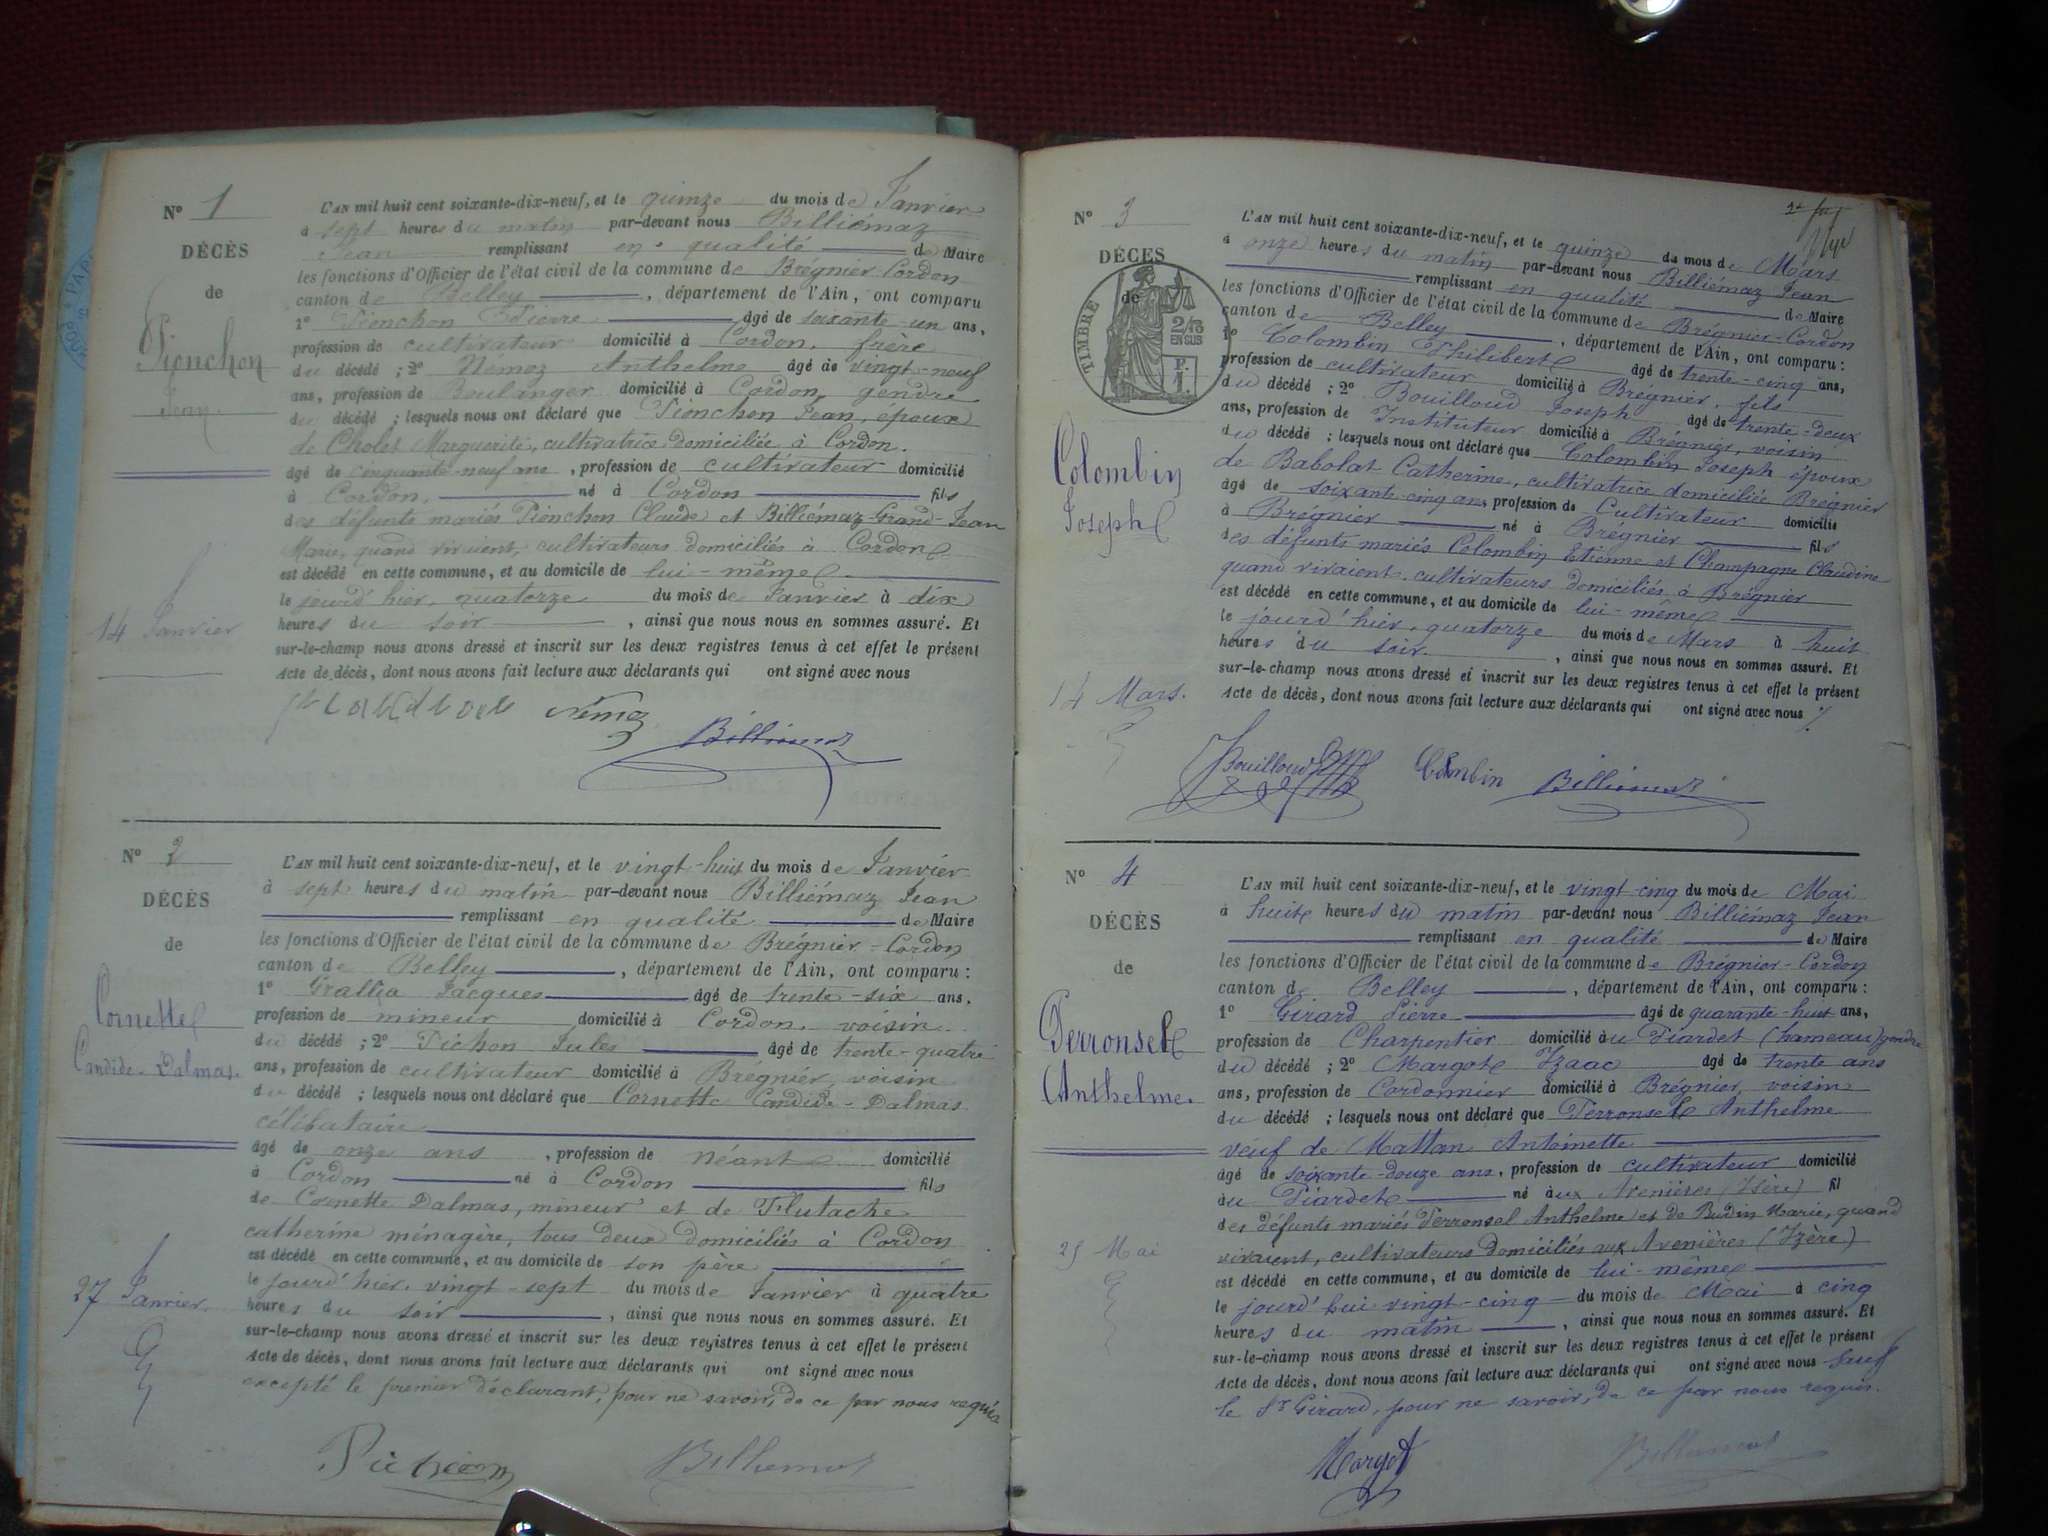 N° 1
DÉCÈS
de
Pionchon
Jean
14 Janvier
L'AN mil huit cent soixante-dix-neuf, et le quinze du mois de Janvier
à sept heures du matin par-devant nous Billiémaz
Jean remplissant en qualité de Maire
les fonctions d'Officier de l'état civil de la commune de Brégnier-Cordon
canton de Belley, département de l'Ain, ont comparu
1° Pionchon Pierre âgé de soixante-un ans,
profession de cultivateur domicilié à Cordon, frère
du décédé ; 2° Némoz Anthelme âgé de vingt-neuf
ans, profession de Boulanger domicilié à Cordon, gendre
du décédé ; lesquels nous ont déclaré que Pionchon Jean, époux
de Cholet Marguerite, cultivatrice domiciliée à Cordon.
âgé de cinquante-neuf ans, profession de cultivateur domicilié
à Cordon, né à Cordon fils
des défunts mariés Pionchon Claude et Billiémaz-Grand-Jean
Marie, quand vivaient, cultivateurs domiciliés à Cordon
est décédé en cette commune, et au domicile de lui-même
le jourd'hier, quatorze du mois de Janvier à dix
heures du soir, ainsi que nous nous en sommes assuré. Et
sur-le-champ nous avons dressé et inscrit sur les deux registres tenus à cet effet le présent
Acte de décès, dont nous avons fait lecture aux déclarants qui ont signé avec nous
Némoz
Billiemaz
N° 2
DÉCÈS
de
Cornette
Candide-Dalmas
27 Janvier
L'AN mil huit cent soixante-dix-neuf, et le vingt-huit du mois de Janvier
à sept heures du matin par-devant nous Billiémaz Jean
remplissant en qualité de Maire
les fonctions d'Officier de l'état civil de la commune de Brégnier-Cordon
canton de Belley, département de l'Ain, ont comparu :
1° Grallia Jacques âgé de trente-six ans,
profession de mineur domicilié à Cordon, voisin
du décédé ; 2° Pichon Jules âgé de trente-quatre
ans, profession de cultivateur domicilié à Brégnier, voisin
du décédé ; lesquels nous ont déclaré que Cornette Candide-Dalmas
célibataire
âgé de onze ans, profession de néant domicilié
à Cordon né à Cordon fils
de Cornette Dalmas, mineur et de Flutache
catherine ménagère, tous deux domiciliés à Cordon
est décédé en cette commune, et au domicile de son père
le jourd'hier, vingt-sept du mois de Janvier à quatre
heures du soir, ainsi que nous nous en sommes assuré. Et
sur-le-champ nous avons dressé et inscrit sur les deux registres tenus à cet effet le présent
Acte de décès, dont nous avons fait lecture aux déclarants qui ont signé avec nous
excepté le premier déclarant, pour ne savoir, de ce par nous requis
Pichon
Billiemaz
N° 3
DÉCÈS
de
TIMBRE
2/10
EN SUS
Colombin
Joseph
14 Mars.
L'AN mil huit cent soixante-dix-neuf, et le quinze du mois de Mars
à onze heures du matin par-devant nous Billiémaz Jean
remplissant en qualité de Maire
les fonctions d'Officier de l'état civil de la commune de Brégnier-Cordon
canton de Belley, département de l'Ain, ont comparu :
1° Colombin Philibert âgé de trente-cinq ans,
profession de cultivateur domicilié à Brégnier, fils
du décédé ; 2° Bouilloud Joseph âgé de trente-deux
ans, profession de Instituteur domicilié à Brégnier, voisin
du décédé ; lesquels nous ont déclaré que Colombin Joseph époux
de Babolat Catherine, cultivatrice domiciliée Brégnier
âgé de soixante-cinq ans profession de Cultivateur domicilié
à Brégnier né à Brégnier fils
des défunts mariés Colombin Etienne et Champagne Claudine
quand vivaient, cultivateurs domiciliés à Brégnier
est décédé en cette commune, et au domicile de lui-même
le jourd'hier, quatorze du mois de Mars à huit
heures du soir, ainsi que nous nous en sommes assuré. Et
sur-le-champ nous avons dressé et inscrit sur les deux registres tenus à cet effet le présent
Acte de décès, dont nous avons fait lecture aux déclarants qui ont signé avec nous
Bouilloud Colombin Billiemaz
N° 4
DÉCÈS
de
Perronset
Anthelme
25 Mai
L'AN mil huit cent soixante-dix-neuf, et le vingt-cinq du mois de Mai
à huit heures du matin par-devant nous Billiémaz Jean
remplissant en qualité de Maire
les fonctions d'Officier de l'état civil de la commune de Brégnier-Cordon
canton de Belley, département de l'Ain, ont comparu :
1° Girard Pierre âgé de quarante-huit ans,
profession de Charpentier domicilié àu Piardet (hameau) gendre
du décédé ; 2° Margot Izaac âgé de trente ans
ans, profession de Cordonnier domicilié à Brégnier, voisin
du décédé ; lesquels nous ont déclaré que Perronset Anthelme
veuf de Mattan Antoinette
âgé de soixante-douze ans, profession de cultivateur domicilié
au Piardet né àux Avenières (Isère) fil
des défunts mariés Perronsel Anthelme et de Budin Marie, quand
vivaient, cultivateurs domiciliés aux Avenières (Izère)
est décédé en cette commune, et au domicile de lui-même
le jourd'hui vingt-cinq du mois de Mai à cinq
heures du matin, ainsi que nous nous en sommes assuré. Et
sur-le-champ nous avons dressé et inscrit sur les deux registres tenus à cet effet le présent
Acte de décès, dont nous avons fait lecture aux déclarants qui ont signé avec nous sauf
le Sr Girard, pour ne savoir, de ce par nous requis.
Margot
Billiemaz